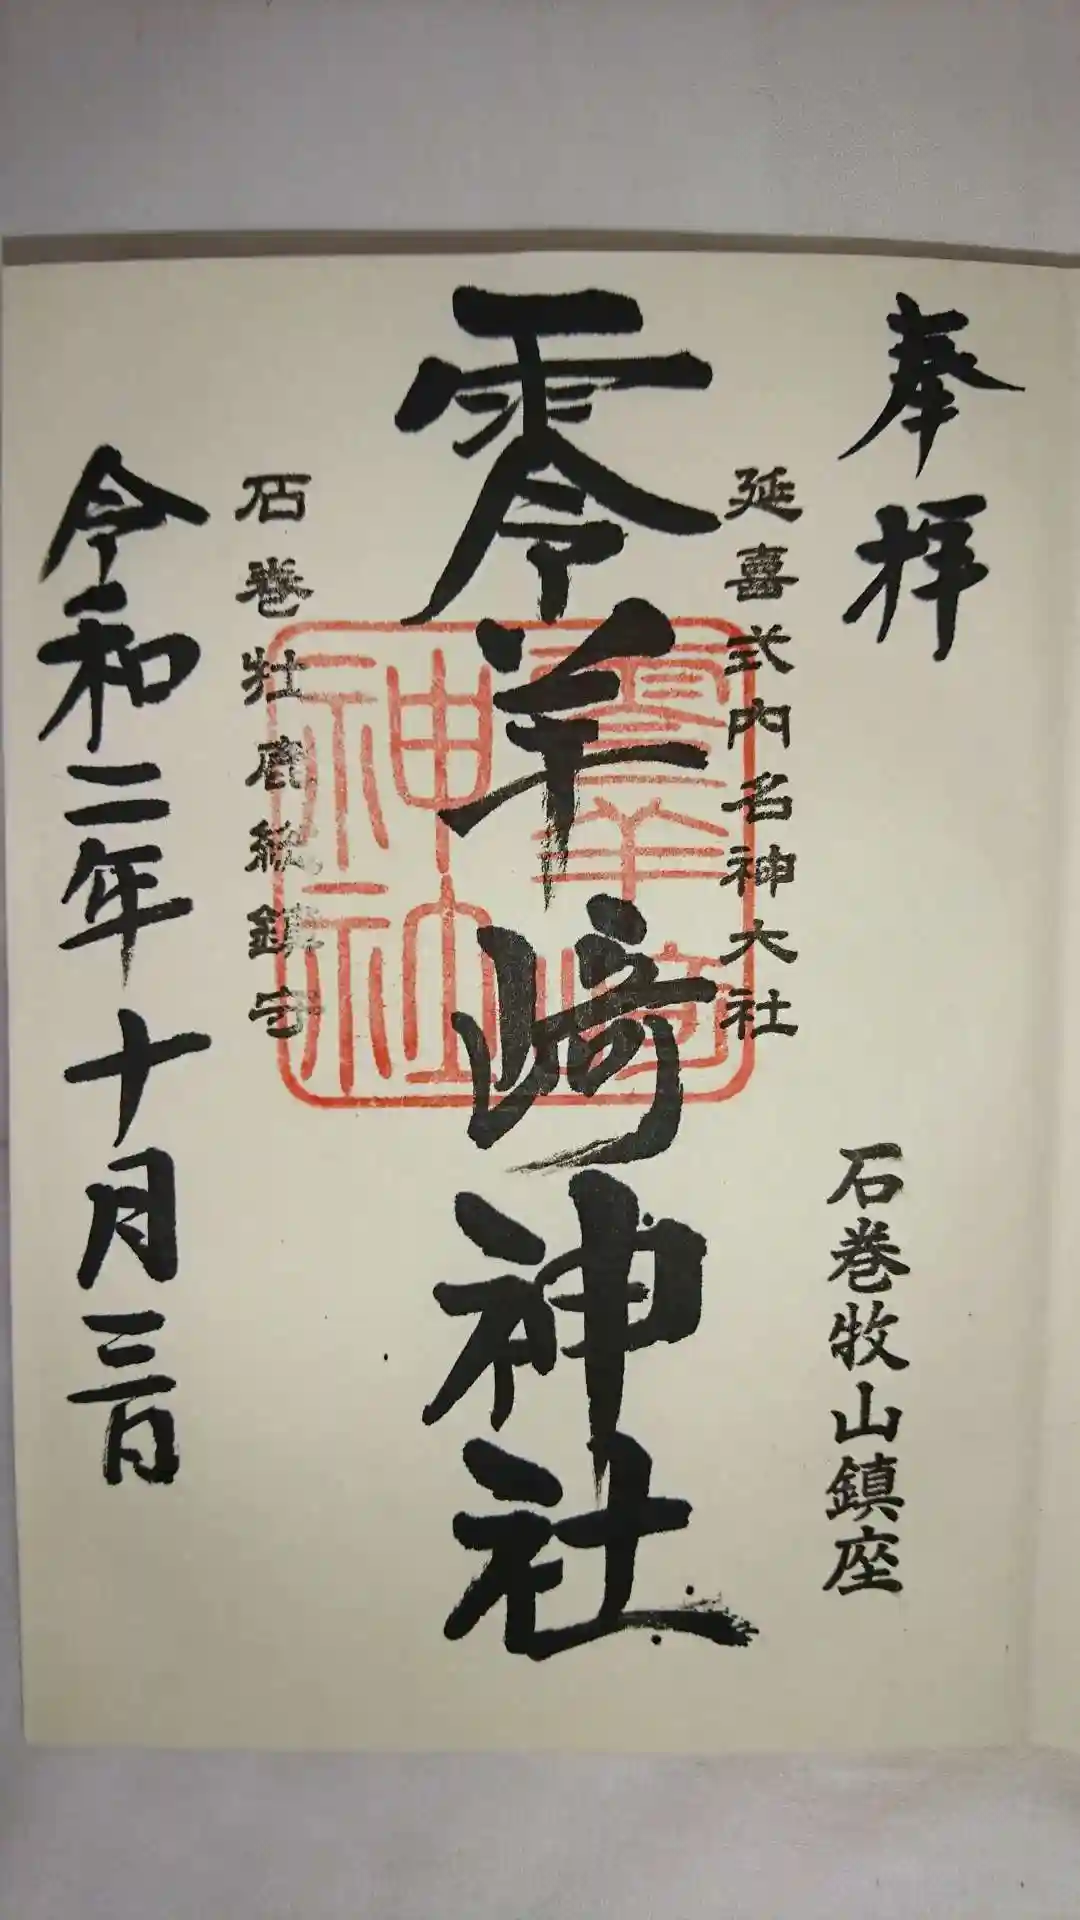 奉拝
石巻牧山鎮座
延喜式内名神大社
零羊崎神社
零羊崎
神社
石巻牡鹿総鎮守
令和二年十月三日